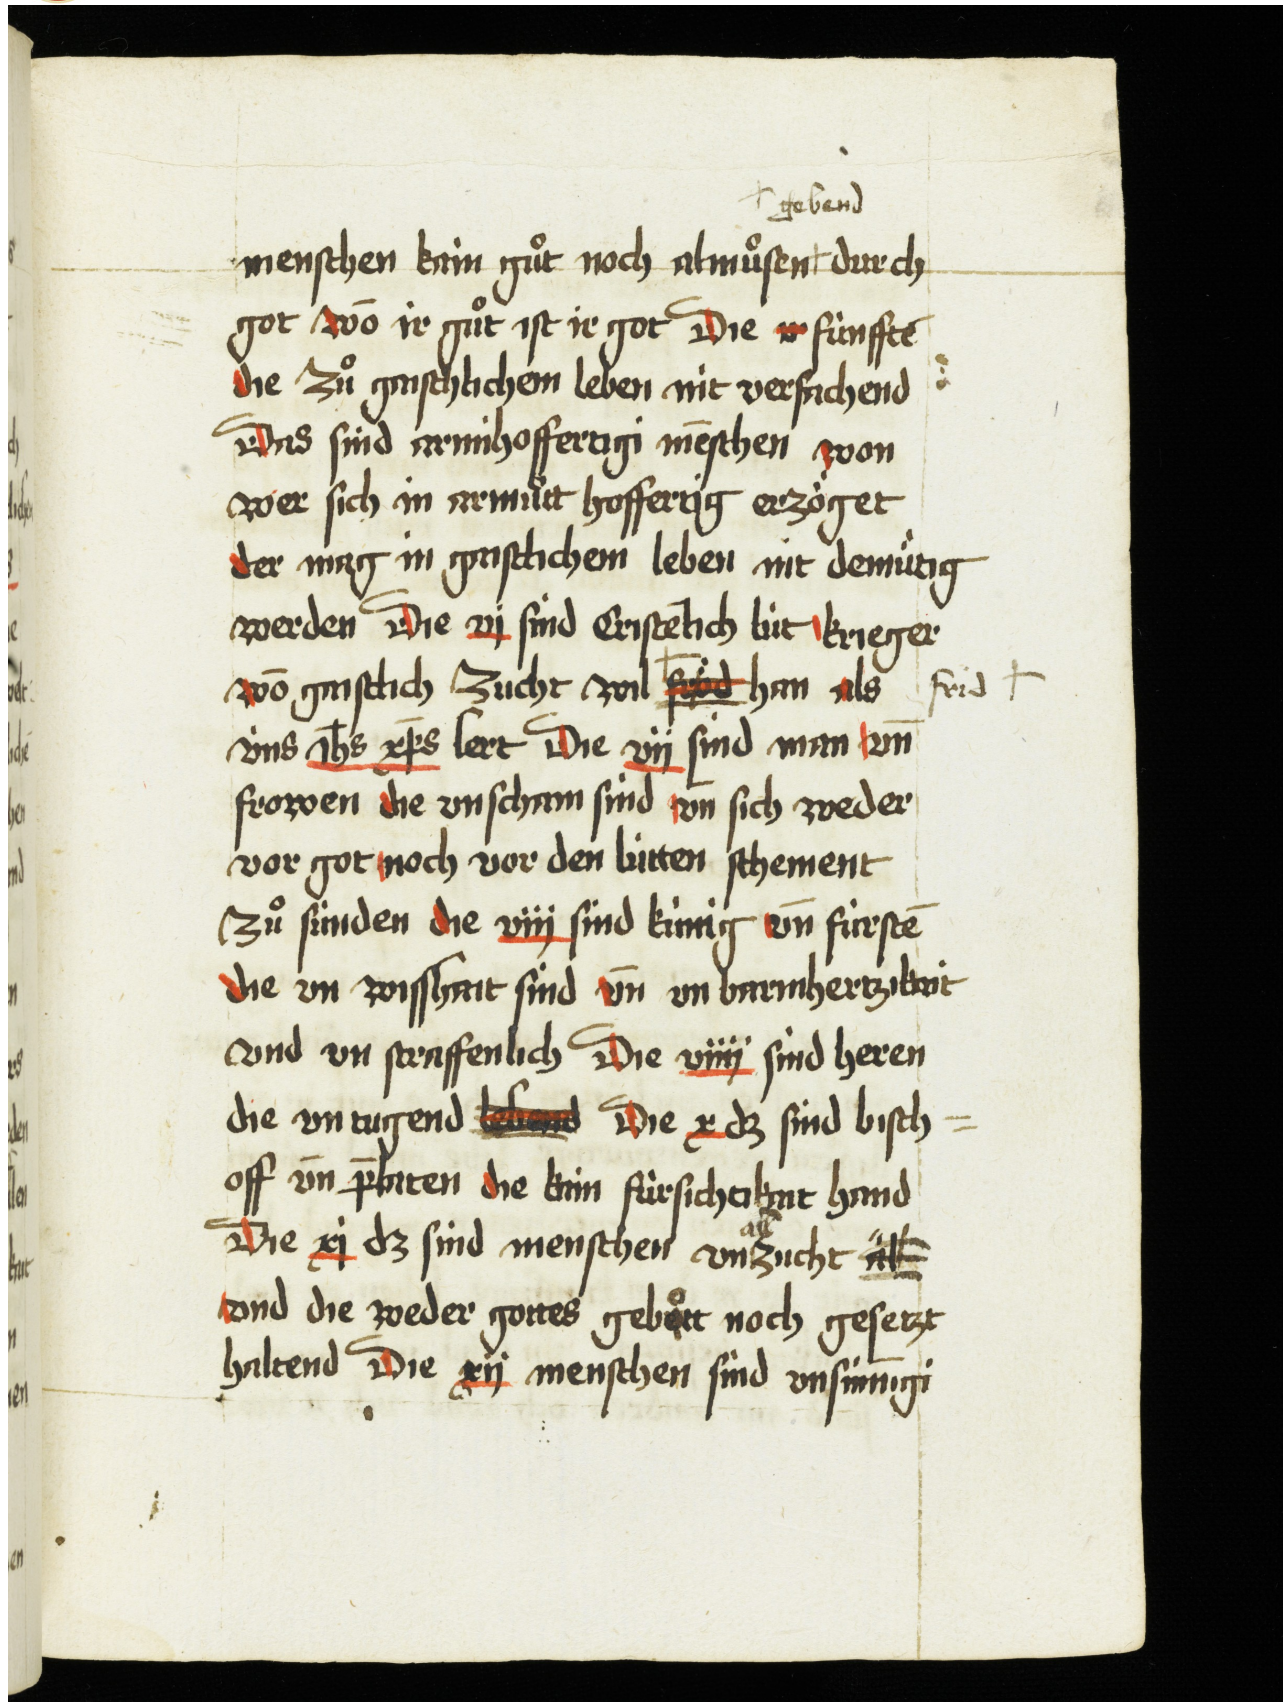 † geband
menschen kain guͦt noch almuͦsen † durch
got wō ir guͦt ist ir got Die fünfftē
die zuͦ gaischlichem leben nit verfachend
Das sind armihoffertigi mēschen won
wer sich in armuͤtt hoffertig erzöget
der mag in gaistlichem leben nit demuͤtig
werden Die vj sind Cristēlich lüt krieger
wō gaistlich zucht wil † han als frid †
üns ih̄s xp̄s lert Die vij sind man vn̄
frowen die vnscham sind vn̄ sich weder
vor got noch vor den lütten schement
zuͦ sünden die viij sind künig vn̄ fürstē
die vn wisshait sind vn̄ vn barmhertzikait
vnd vn straffenlich Die viiij sind heren
die vn tugend lebend Die x dz sind bisch =
off vn̄ p̄laten die kain fürsichtikait hand
all
Die xj dz sind menschen vnzucht äll
vnd die weder gottes gebott noch gesetzt
haltend Die xij menschen sind vnsin̄igi